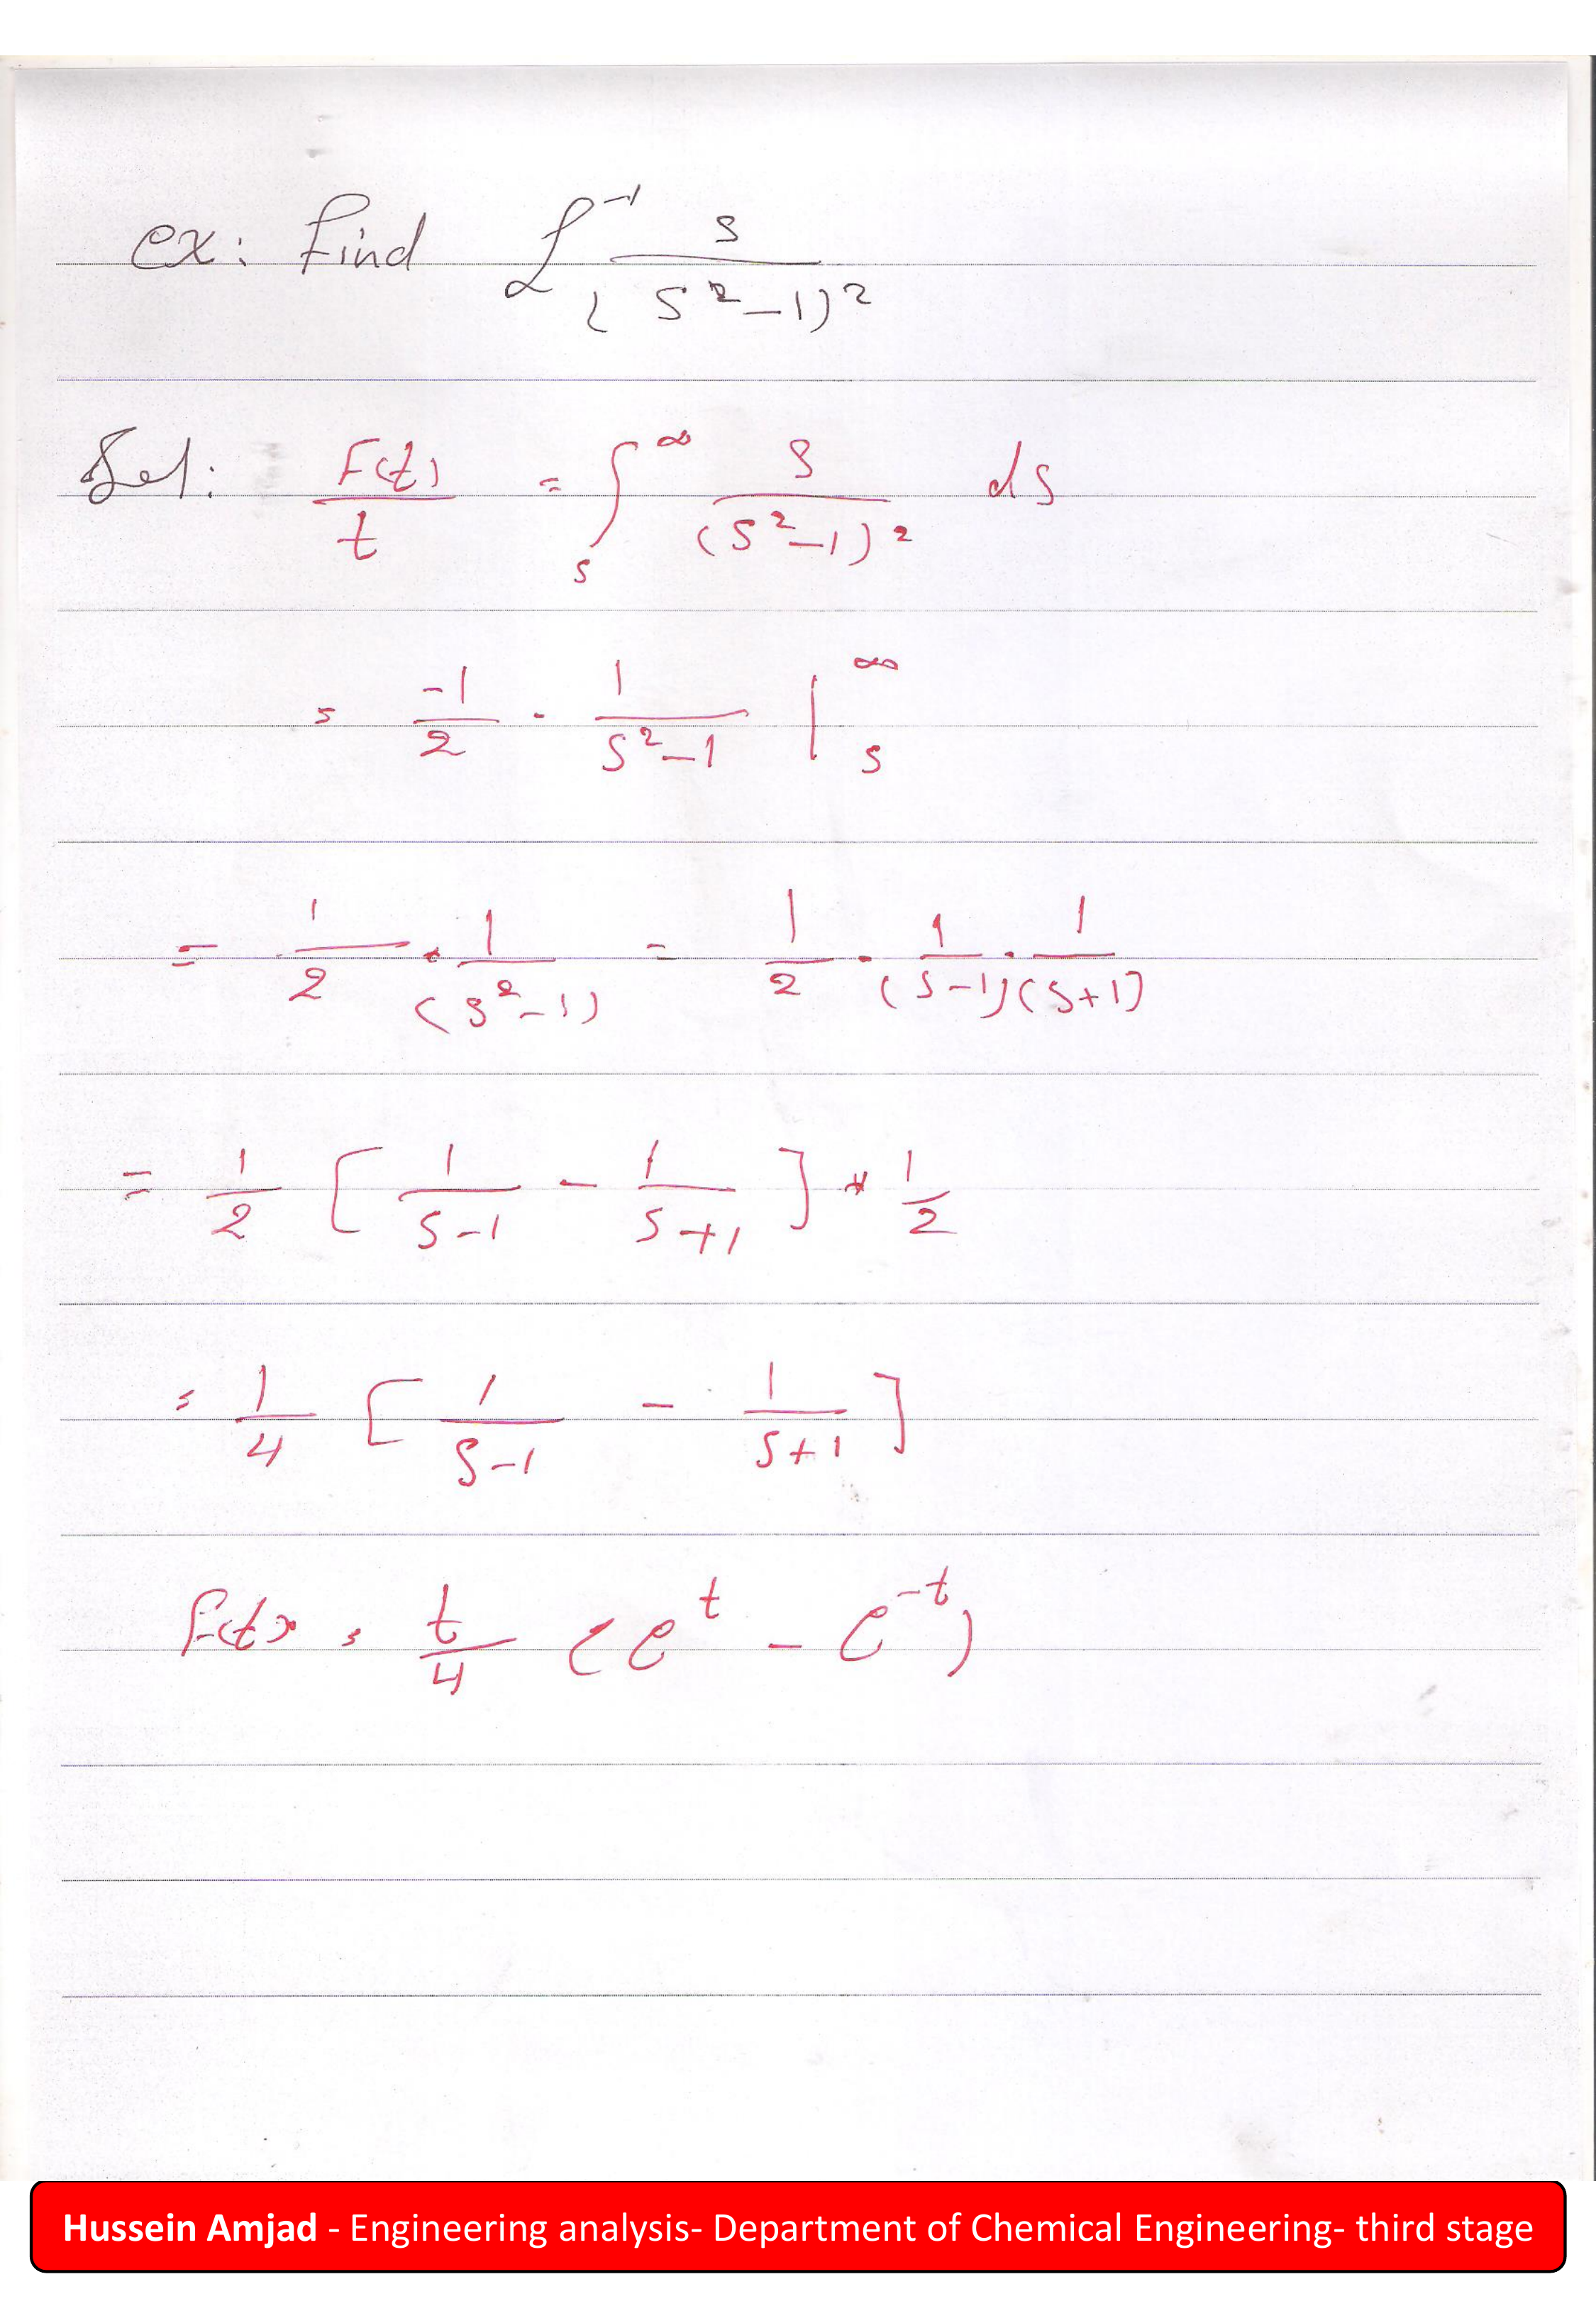 ex: find ℒ⁻¹ s/(s²-1)²
Sol: F(t)/t = ∫ₛ^∞ s/(s²-1)² ds
= -1/2 · 1/(s²-1) |ₛ^∞
= 1/2 * 1/(s²-1) = 1/2 · 1/(s-1) · 1/(s+1)
= 1/2 [ 1/(s-1) - 1/(s+1) ] * 1/2
= 1/4 [ 1/(s-1) - 1/(s+1) ]
F(t) = t/4 (e^t - e^-t)
Hussein Amjad - Engineering analysis- Department of Chemical Engineering- third stage